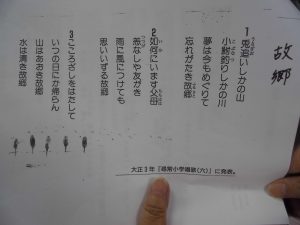 故郷
1 兎追いしかの山
小鮒釣りしかの川
夢は今もめぐりて
忘れがたき故郷
2 如何にいます父母
恙なしや友がき
雨に風につけても
思いいずる故郷
3 こころざしをはたして
いつの日にか帰らん
山はあおき故郷
水は清き故郷
大正3年『尋常小学唱歌(六)』に発表。